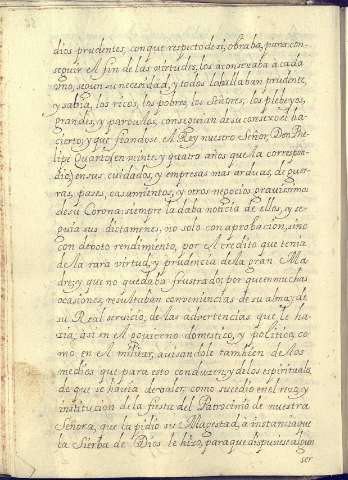 dios prudentes, con que respecto de si, obraba, para con-
seguir el fin de las virtudes, los aconsejaba à cada
uno, segun su necesidad, y todos la hallaban prudente,
y sabia, los ricos, los pobres, los señores, los plebeyos,
grandes, y parvulos, conseguian de su consejo el ha-
cierto; y que fiandose el Rey nuestro Señor Don Phe-
lipe Quarto en veinte, y quatro años que la correspon-
dio, en sus cuidados, y empresas mas arduas, de guer-
ras, pases, casamientos, y otros negocios gravissimos
de su Corona; siempre la daba noticia de ellos, y se-
guia sus dictamenes, no solo con aprobacion, sino
con deboto rendimiento, por el credito que tenia
de la rara virtud, y prudencia de la gran Ma-
dre; y que no quedaba frustrado; por que en muchas
ocasiones, resultaban conveniencias de su alma, y de
su Real servicio, de las advertencias que le ha-
sia, asi en el govierno domestico, y politico, co-
mo en el militar, avisandole tambien de los
medios que para esto conducen, y de los espirituales
de que se havia de valer, como sucedio en el rezo, y
institucion de la fiesta del Patrocinio de nuestra
Señora, que la pidio su Magestad, a instancia que
la Sierba de Dios le hizo, para que dispusiese algun
ser